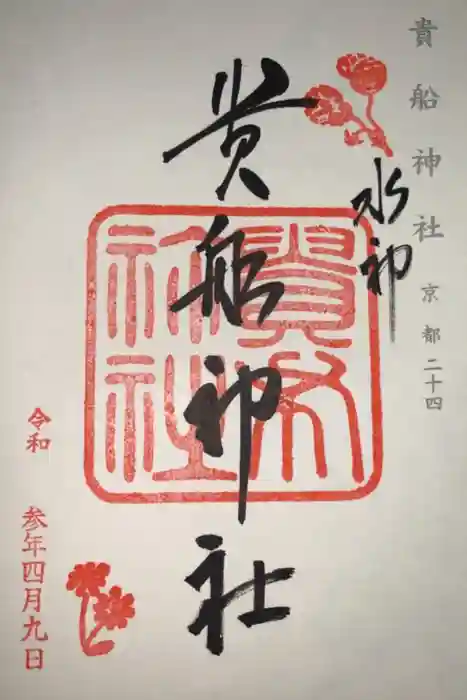 貴船神社 京都 二十四
水神
貴船神社
貴布
祢社
令和 参年四月九日